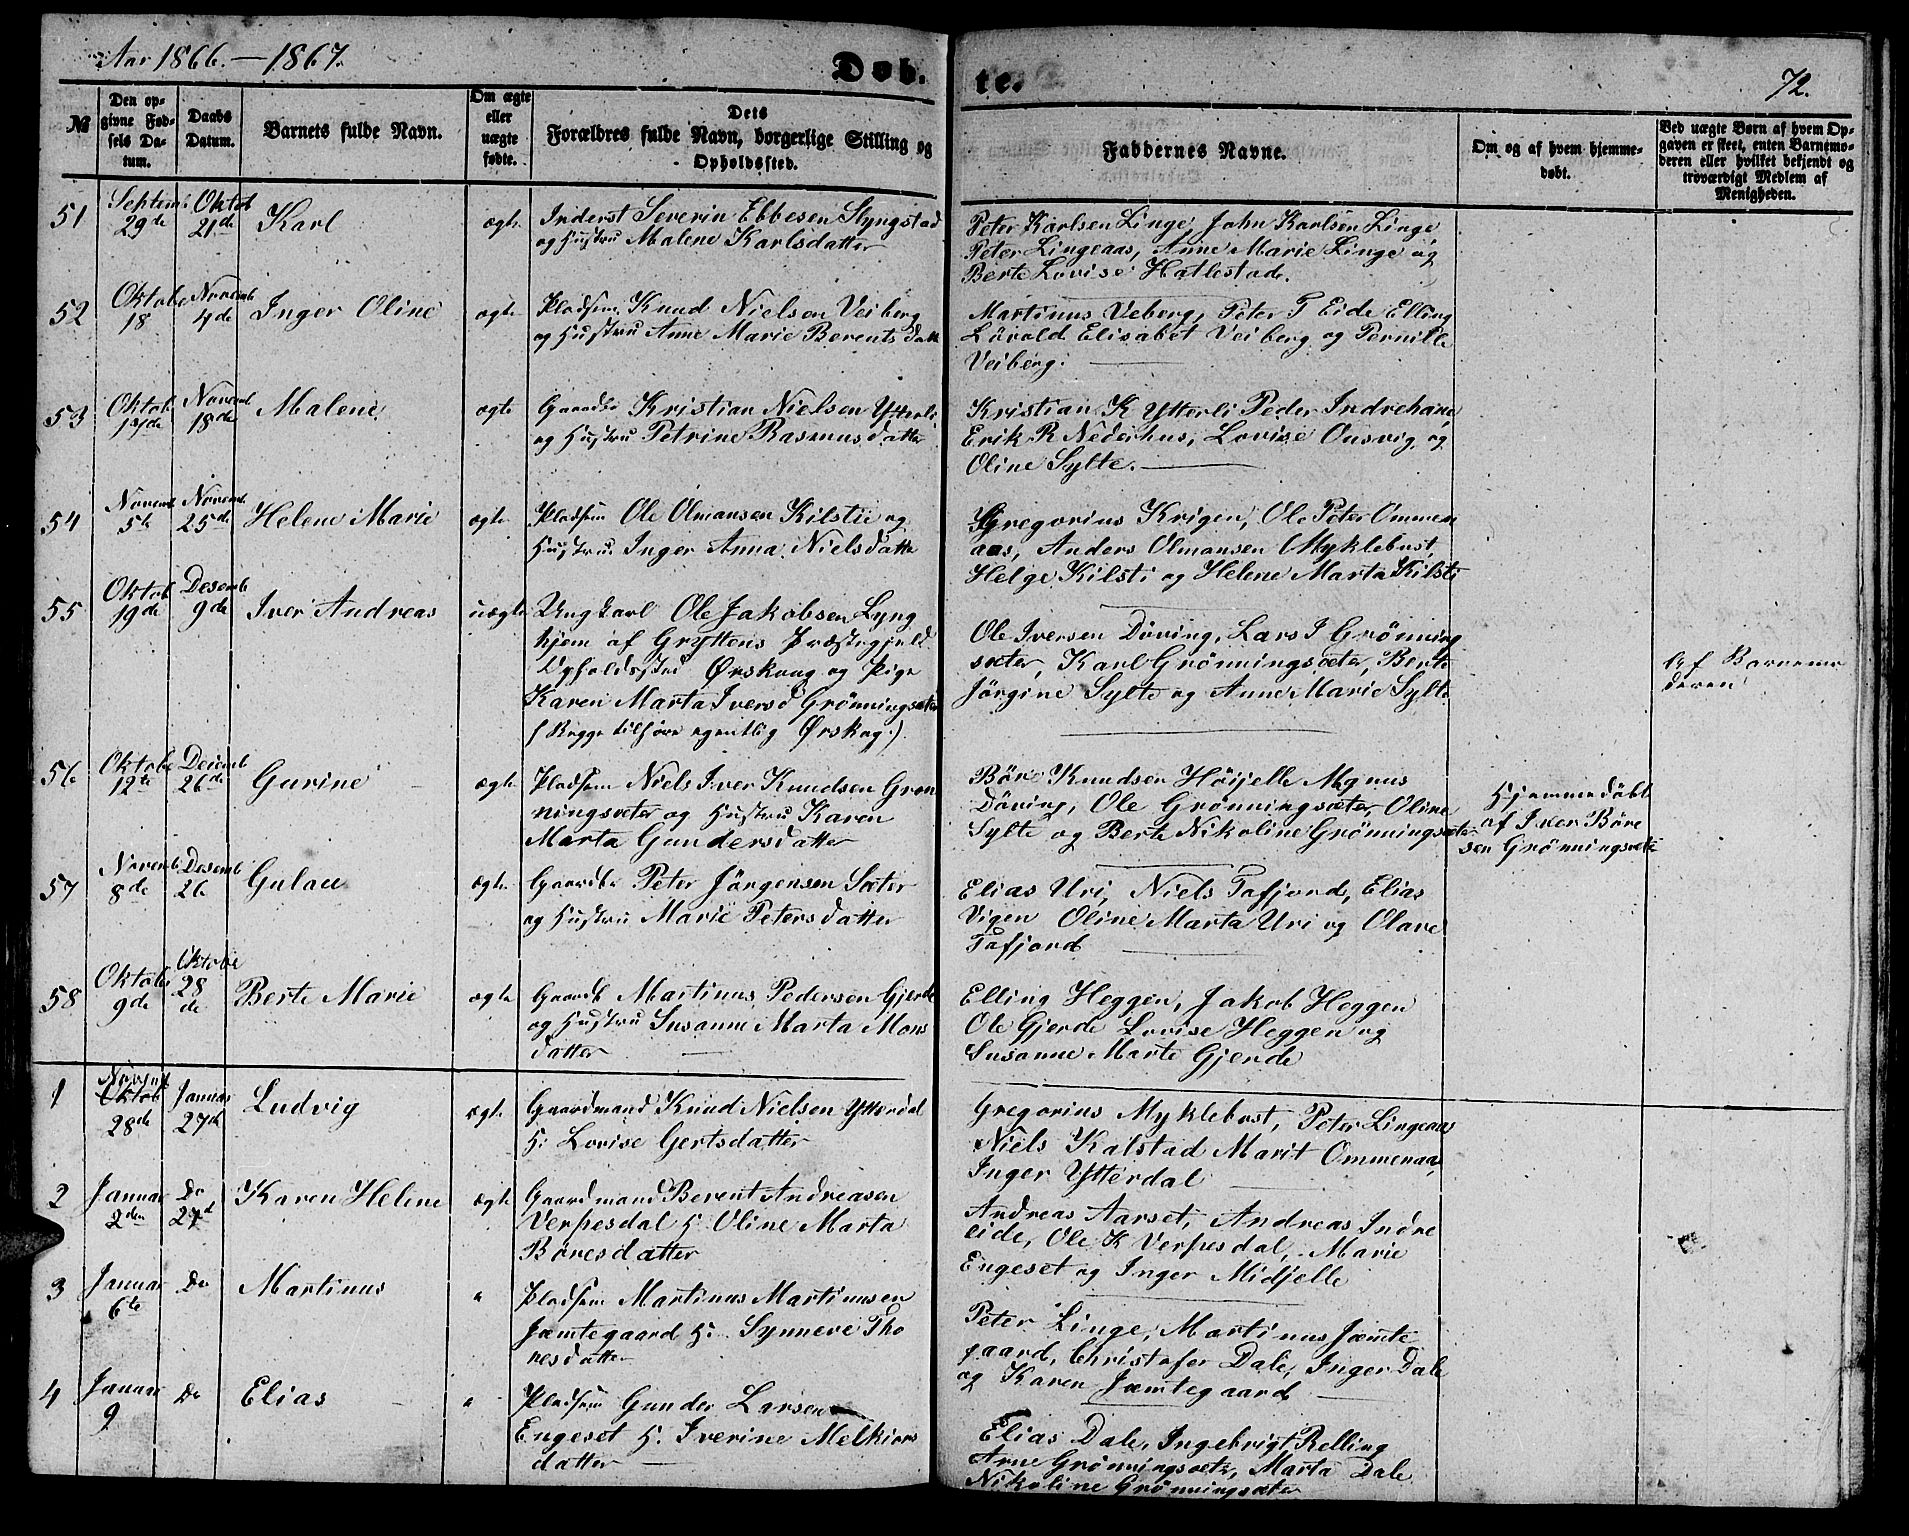 Aar 1866.—1867.
Døb.
te.
72.
№
Den opgivne Fødsels Datum.
Daabs Datum.
Barnets fulde Navn.
Om ægte eller uægte fødte.
Dets Forældres fulde Navn, borgerlige Stilling og Opholdssted.
Faddernes Navne.
Om og af hvem hjemmedøbt.
Ved uægte Børn af hvem Opgaven er skeet, enten Barnemoderen eller hvilket bekjendt og troværdigt Medlem af Menigheden.
51
Septemb 29de
Oktob 21de
Karl
ægte
Inderst Severin Ebbesen Slyngstad
og Hustru Malene Karlsdatter
Peter Karlsen Linge, John Karlsen Linge
Peter Lingeaas, Anne Marie Linge og
Berte Lovise Hatlestad.
52
Oktobe 18
Novemb 4de
Inger Oline
ægte
Pladsm. Knud Nielsen Veiberg
og Hustru Anne Marie Berentsdatt
Martinus Veberg, Peter T Eide Elling
Lövold Elisabet Veiberg og Pernille
Veiberg.
53
Oktob
Novemb 18de
Malene
ægte
Gaardbr Kristian Nielsen Ytterli
og Hustru Petrine Rasmusdatter
Kristian K Ytterli Peder Indrehane
Erik R Nederhus, Lovise Onsvig og
Oline Sylte.
54
Novemb 5te
Novemb. 25de
Helene Marie
ægte
Pladsm Ole Olmansen Kilstie og
Hustru Inger Anna Nielsdatte
Gregorius Krigen, Ole Peter Ommen
aas, Anders Olmansen Myklebust,
Helge Kilsti og Helene Marta Kilsti
55
Oktob 19de
Desemb 9de
Iver Andreas
uægte
Ungkarl Ole Jakobsen Lyng
hjem af Gryttens Præstegjeld
Opholdssted Ørskoug og Pige
Karen Marta Iversd Grönningsæter
(Begge tilhøre egentlig Ørskog.)
Ole Iversen Döving, Lars I Grönning
sæter, Karl Grönningsæter, Berte
Jörgine Sylte og Anne Marie Sylte
Af Barnemo
deren
56
Oktobe 12te
Decemb 26de
Gurine
ægte
Pladsm Niels Iver Knudsen Grøn
ningsæter og Hustru Karen
Marta Gundersdatter
Böre Knudsen Höijelle Magnus
Döving, Ole Grönningsæter, Oline
Sylte og Berte Nikoline Grönningsæte
Hjemmedöbt
af Iver Böre
sen Grönningsæte
57
Novemb 8de
Desemb 26
Gulau
ægte
Gaardbr Peter Jörgensen Sæter
og Hustru Marie Petersdatter
Elias Uri, Niels Tafjord, Elias
Vigen Oline Marta Uri og Olave
Tafjord
58
Oktobe 9de
Oktobe 28 de
Berte Marie
ægte
Gaardb Martinus Pedersen Gjerde
og Hustru Susanne Marta Mons
datter
Elling Heggen, Jakob Heggen
Ole Gjerde Lovise Heggen og
Susanne Marte Gjerde
1
Oktob 28de
Januar 27de
Ludvig
ægte
Gaardmand Knud Nielsen Ytterdal
H: Lovise Gertsdatter
Gregorius Myklebust, Peter Lingeaas
Niels Kalstad Marit Ommenaas
Inger Ytterdal
2
Januar 2den
Do 27d
Karen Helene
ægte
Gaardmand Berent Andreasen
Verpesdal H: Oline Marta
Böresdatter
Andreas Aarset, Andreas Indre
eide, Ole K Verpesdal, Marie
Engeset og Inger Midjelle
3
Januar 6te
Do
Martinus
"
Pladsm Martinus Martinusen
Jæmtegaard H: Synneve Tho
resdatter
Peter Linge, Martinus Jæmte
gaard, Christofer Dale, Inger Dale
og Karen Jæmtegaard
4
Januar 9
Do
Elias
"
Pladsm Gunder Larsen
Engeset H: Iverine Melkiors
datter
Elias Dale, Ingebrigt Relling
Arne Grönningsæte, Marta Dale
Nikoline Grönningsæter